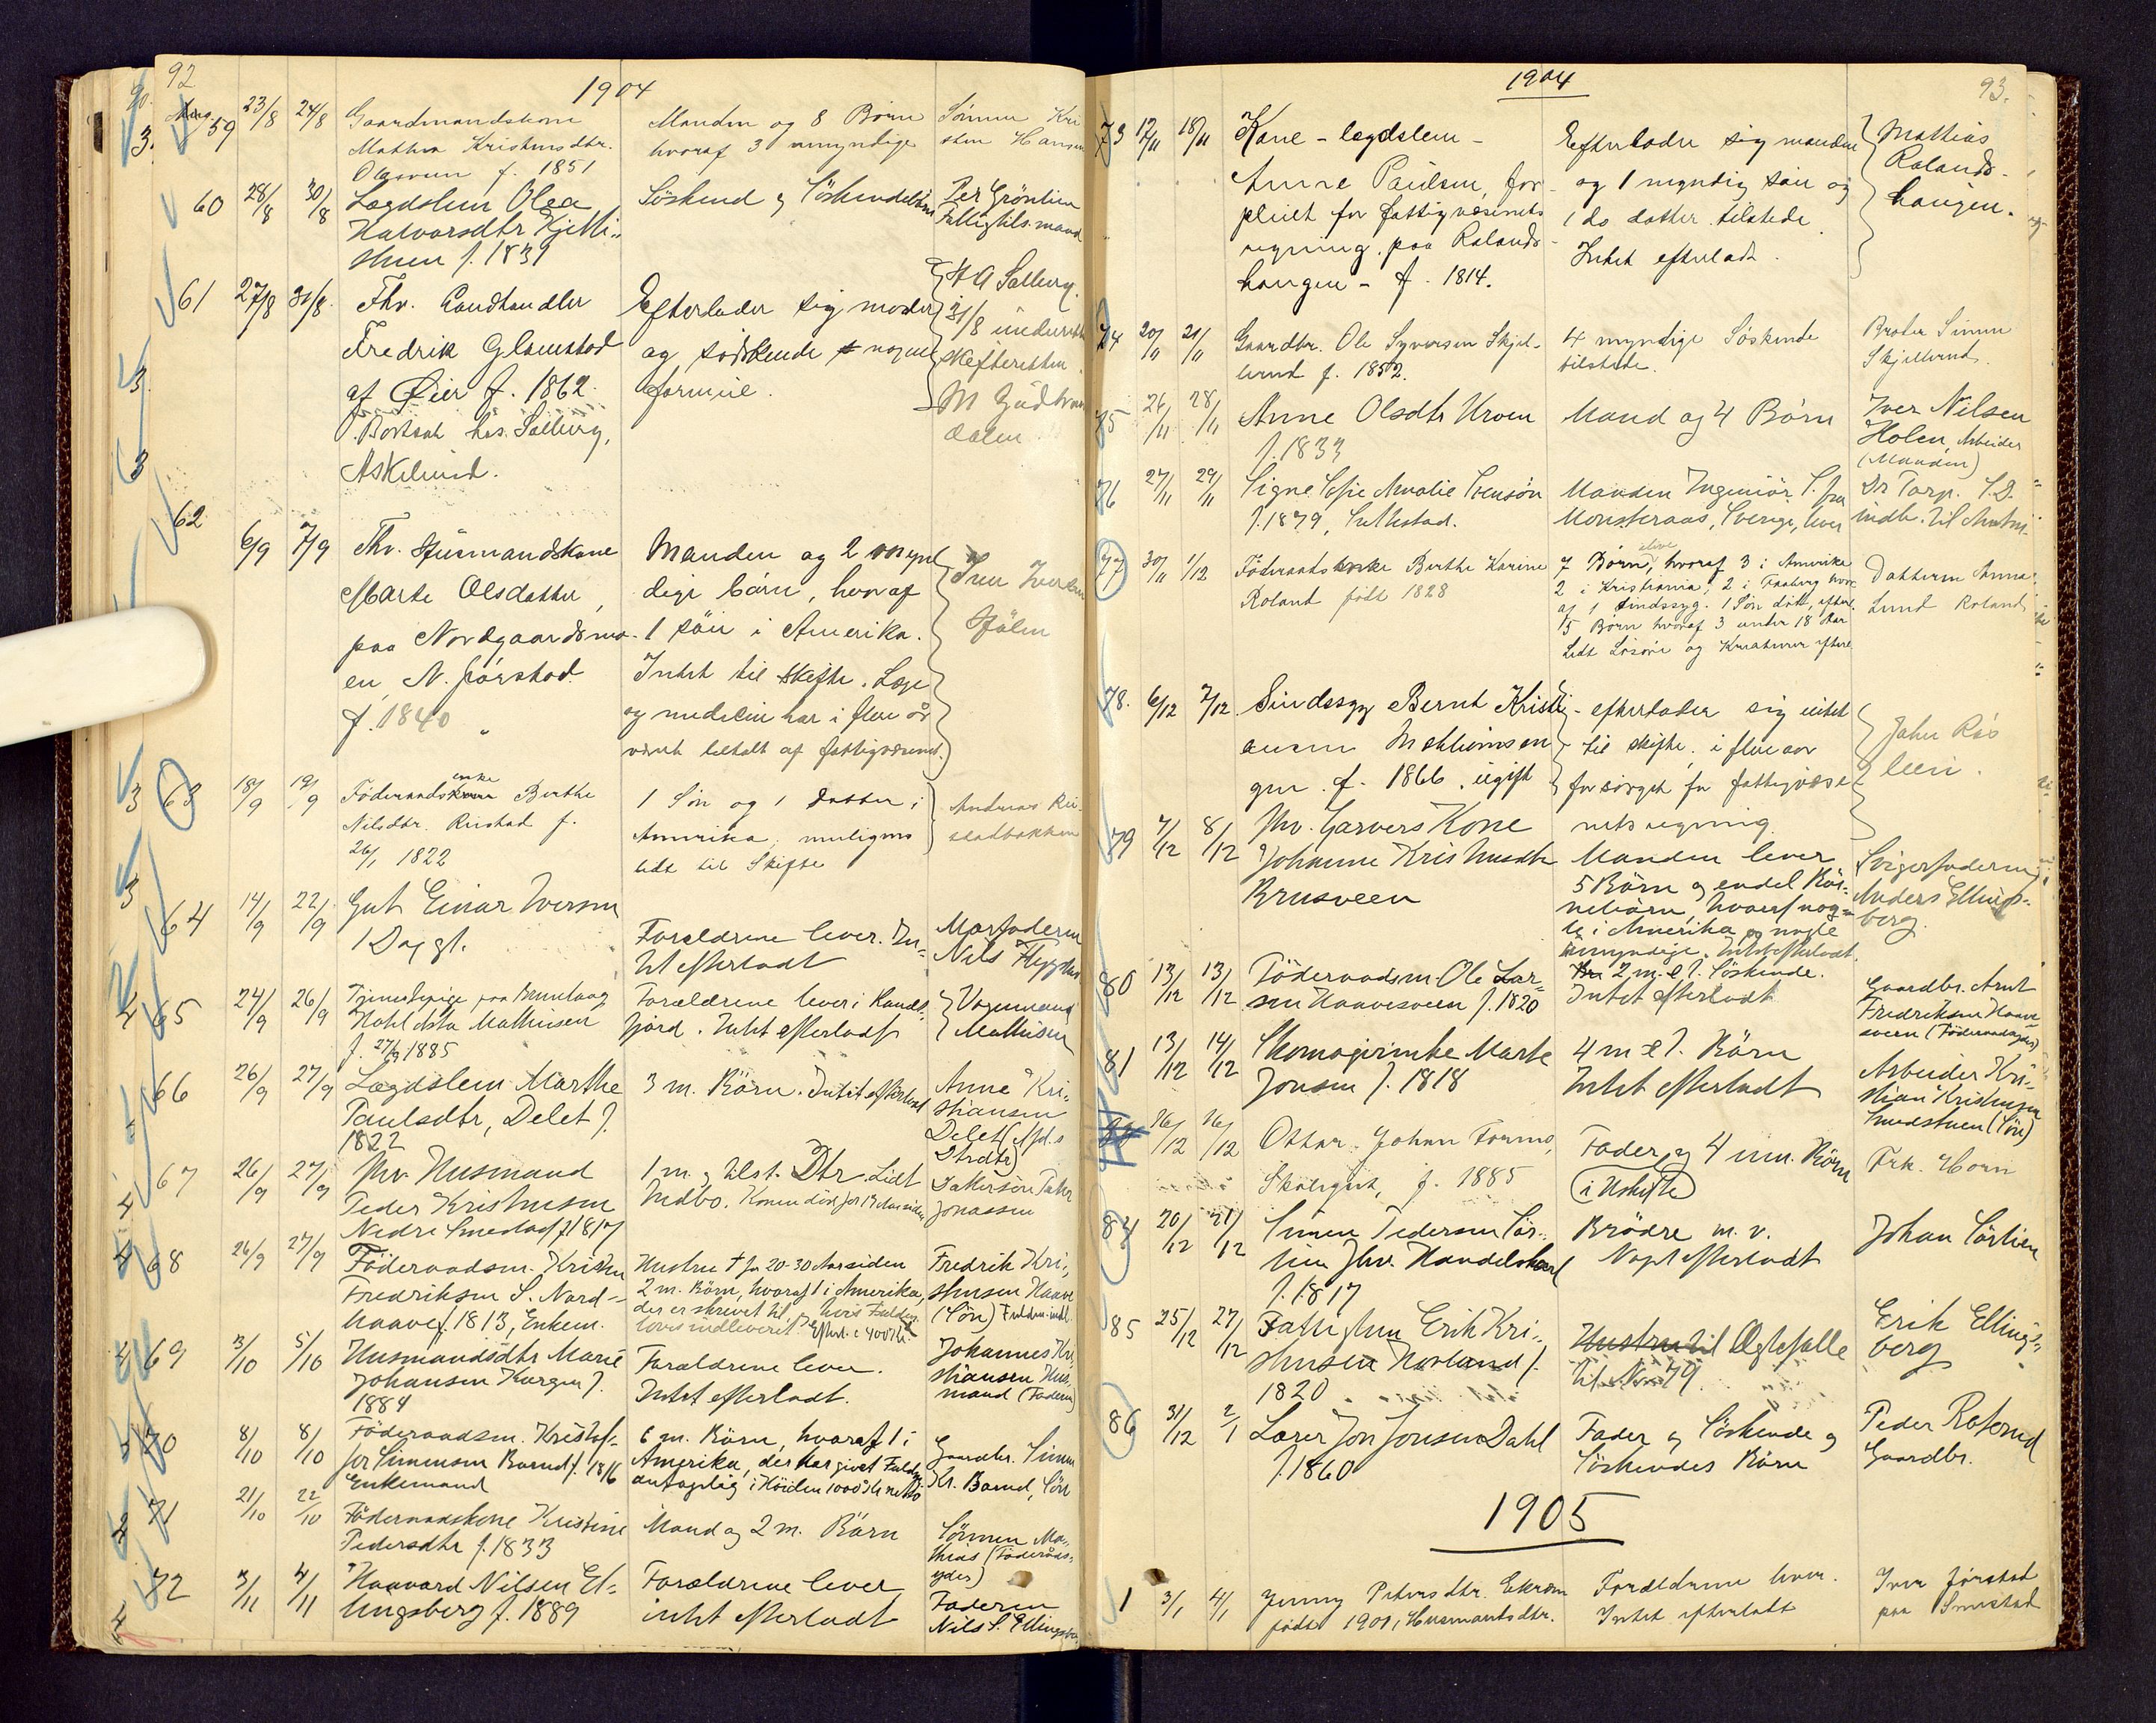 92
1904
Aug.
59 23/8 24/8 Gaardmandskone
Mathea Kristensdtr.
f. 1851
Manden og 8 Børn
hvoraf 3 umyndige
Sønnen Kri
sten Hansen
60 28/8 30/8 Lægdslem Olea
Halvorsdtr Kjelli=
stuen f. 1831
Søskend og Søskendebørn
Per Grønlien
Fattigtils.mand
61 27/8 31/8 Fhv. Landhandler
Fredrik Glomstad
af Øier f. 1862.
Bortsat hos Solberg,
Askelund.
Efterlader sig moder
og søskende nogen
formue.
H A Solberg.
31/8 underrettet
skifteretten.
M Gudbrands
dalen
62 6/9 7/9 Fhv. Husmandskone
Marte Olsdatter,
paa Nordgaardsmo-
en, N. Jørstad.
f. 1840
Manden og 2 myn
dige børn, hvoraf
1 søn i Amerika.
Intet til skifte. Læge
og medicin har i flere år
været betalt af fattigvæsenet.
Iver Iversen
63 18/9 19/9 Føderaadsenke Berthe
Nilsdtr. Riistad f.
26/1 1822
1 Søn og 1 Datter i
Amerika, muligens
lidt til Skifte
Andreas Rii-
stadbakken
64 14/9 22/9 Gut Einar Iversen
1 Dag gl.
Forældrene lever. In=
tet efterladt
Morfaderen
Nils Flyggstuen
65 24/9 26/9 Tjenestepige paa Brunlaug
Hotel Asta Mathiesen
f. 27/9 1885
Forældrene lever i Rands
fjord. Intet efterladt
Vognmand
Mathisen
66 26/9 27/9 Lægdslem Marthe
Paulsdtr, Delet f.
1822
3 m. Børn. Intet efterladt
Anne Kri=
stiansen
Delet (Afd.s
Dtrdtr)
67 26/9 27/9 fhv. Husmand
Peder Kristensen
Nedre Smestad f 1817
1 m. tilst. Dtr. Lidt
Indbo. Konen død for 13 Aar siden
Dattersøn Peter
Jonassen
68 26/9 27/9 Føderaadsm. Kristen
Fredriksen S. Nord=
haave f. 1813, Enkem.
Hustru † for 20-30 Aar siden
2 m. Børn, hvoraf 1 i Amerika,
der er skrevet til, hvis Fuldm.
loves indleveret. Efterl. c 400 Kr
Fredrik Kri=
stensen Haave
(Søn) Fuldm. indl.
69 3/10 5/10 Husmandsdtr Marie
Johansen Korgen f.
1884
Forældrene lever.
Intet efterladt.
Johannes Kri
stiansen Hus=
mand (Faderen)
70 8/10 8/10 Føderaadsm. Kristof=
fer Simensen Baarud f. 1816
Enkemand
6 m. Børn, hvoraf 1 i
Amerika, der har givet Fuldm
antagelig i Høiden 1000 Kr netto
Gaardbr. Simen
Kr. Baarud, Søn
71 21/10 22/10 Føderaadskone Kristine
Pedersdtr f. 1833
Mand og 2 m. Børn
Sønnen Ma=
thias (Føderåds=
yder)
72 3/11 4/11 Haavard Nilsen El=
lingsberg f. 1889
Forældrene lever
intet efterladt
Faderen
Nils S. Ellingsberg
1904
93.
73 17/11 18/11 Kone - lægdslem -
Anne Paulsen, for-
pleiet for fattigvæsenets
regning paa Rolands-
haugen - f. 1814.
Efterlader sig manden
og 1 myndig søn og
1 do datter tilstede.
Intet efterladt.
Mathias
Rolands-
haugen.
74 20/11 21/11 Gaardbr. Ole Syversen Skjel-
lerud f. 1852.
4 myndige Søskende
tilstede.
Broder Simen
Skjellerud.
75 26/11 28/11 Anne Olsdtr Kroen
f. 1833
Mand og 4 Børn
Iver Nilsen
Holen, Arbeider
(Manden)
76 27/11 29/11 Signe Sofie Amalie Svensøn
f. 1879, Suttestad.
Manden Ingeniør S. fra
Mønsteraas, Sverige, lever
Dr Torp. S.D.
indb. til Amtm.
77 30/11 1/12 Føderaadsenke Berthe Karine
Roland født 1828
7 Børn ilive, hvoraf 3 i Amerika
2 i Kristiania, 2 i Faaberg hvor
af 1 sindssyg. 1 Søn død, efterl.
5 Børn hvoraf 3 under 18 Aar
Lidt Løsøre og Kreaturer efterl
Datteren Anna
Lund Roland
78. 6/12 7/12. Sindssyg Bernt Kristi-
ansen Mehlumsen
gen f. 1866. ugift
efterlader sig intet
til skifte. i flere aar
forsørget for fattigvæse
nets regning.
John Røs
lien.
79 7/12 8/12 fhv. Garvers Kone
Johanne Kristensdtr
Brusveen
Manden lever
5 Børn og endel Bør=
nebørn, hvoraf nog=
le i Amerika og nogle
umyndige. Intet efterladt.
Svigersønnen
Anders Ellings-
berg
80 13/12 13/12 Føderaadsm. Ole Lar=
sen Haavesveen f. 1820
2 m. e l. Søskende.
Intet efterladt
Gaardbr. Arnt
Fredriksen Haave
sveen (Føderaadsyder)
81 13/12 14/12 Skomagerenke Marte
Jonsen f. 1818
4 m e l. Børn
Intet efterladt
Arbeider Kri=
stian Kristensen
Smedstuen (Søn)
16/12 16/12 Ottar Johan Formo,
Skolegut, f. 1885
Fader og 4 um. Børn
i Uskifte
Frk. Horn
84 20/12 21/12 Simen Pedersen Sør=
lien fhv. Handelskarl
f. 1817
Brødre m. v.
Noget efterladt
Johan Sørlien
85 25/12 27/12 Fattiglem Erik Kri=
stensen Horland f.
1820
Hustru til Ægtefælle
til No 79
Erik Ellings=
berg
86 31/12 2/1 Lærer Jon Jonsen Dahl
f. 1860
Fader og Søskende og
Søskendes Børn
Peder Roterud
Gaardbr.
1905
1 3/1 4/1 Jenny Petersdtr. Ekrom
født 1901, Husmandsdtr.
Forældrene lever.
Intet efterladt
Iver Jørstad
paa Smestad